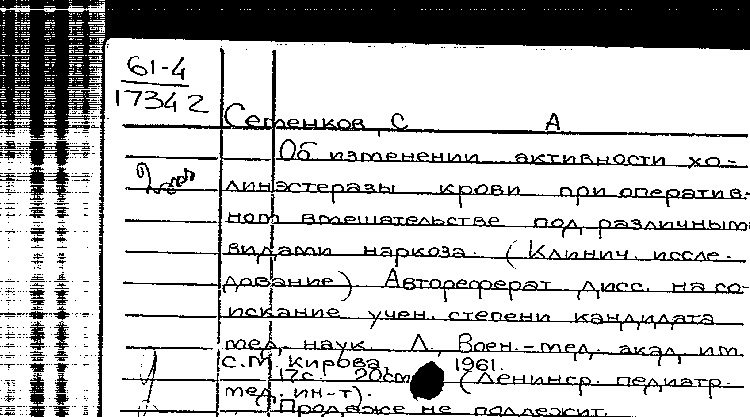 61-4
17342
Семенков, С А
Об изменении активности хо-
линэстеразы крови при оператив-
ном вмешательстве под различными
видами наркоза. (Клинич. иссле-
дование). Автореферат дисс. на со-
искание учен. степени кандидата
мед. наук. Л., Воен.-мед. акад. им.
С.М. Кирова, 1961.
12с. 20см (Ленингр. педиатр.
мед. ин-т).
Продаже не подлежит.